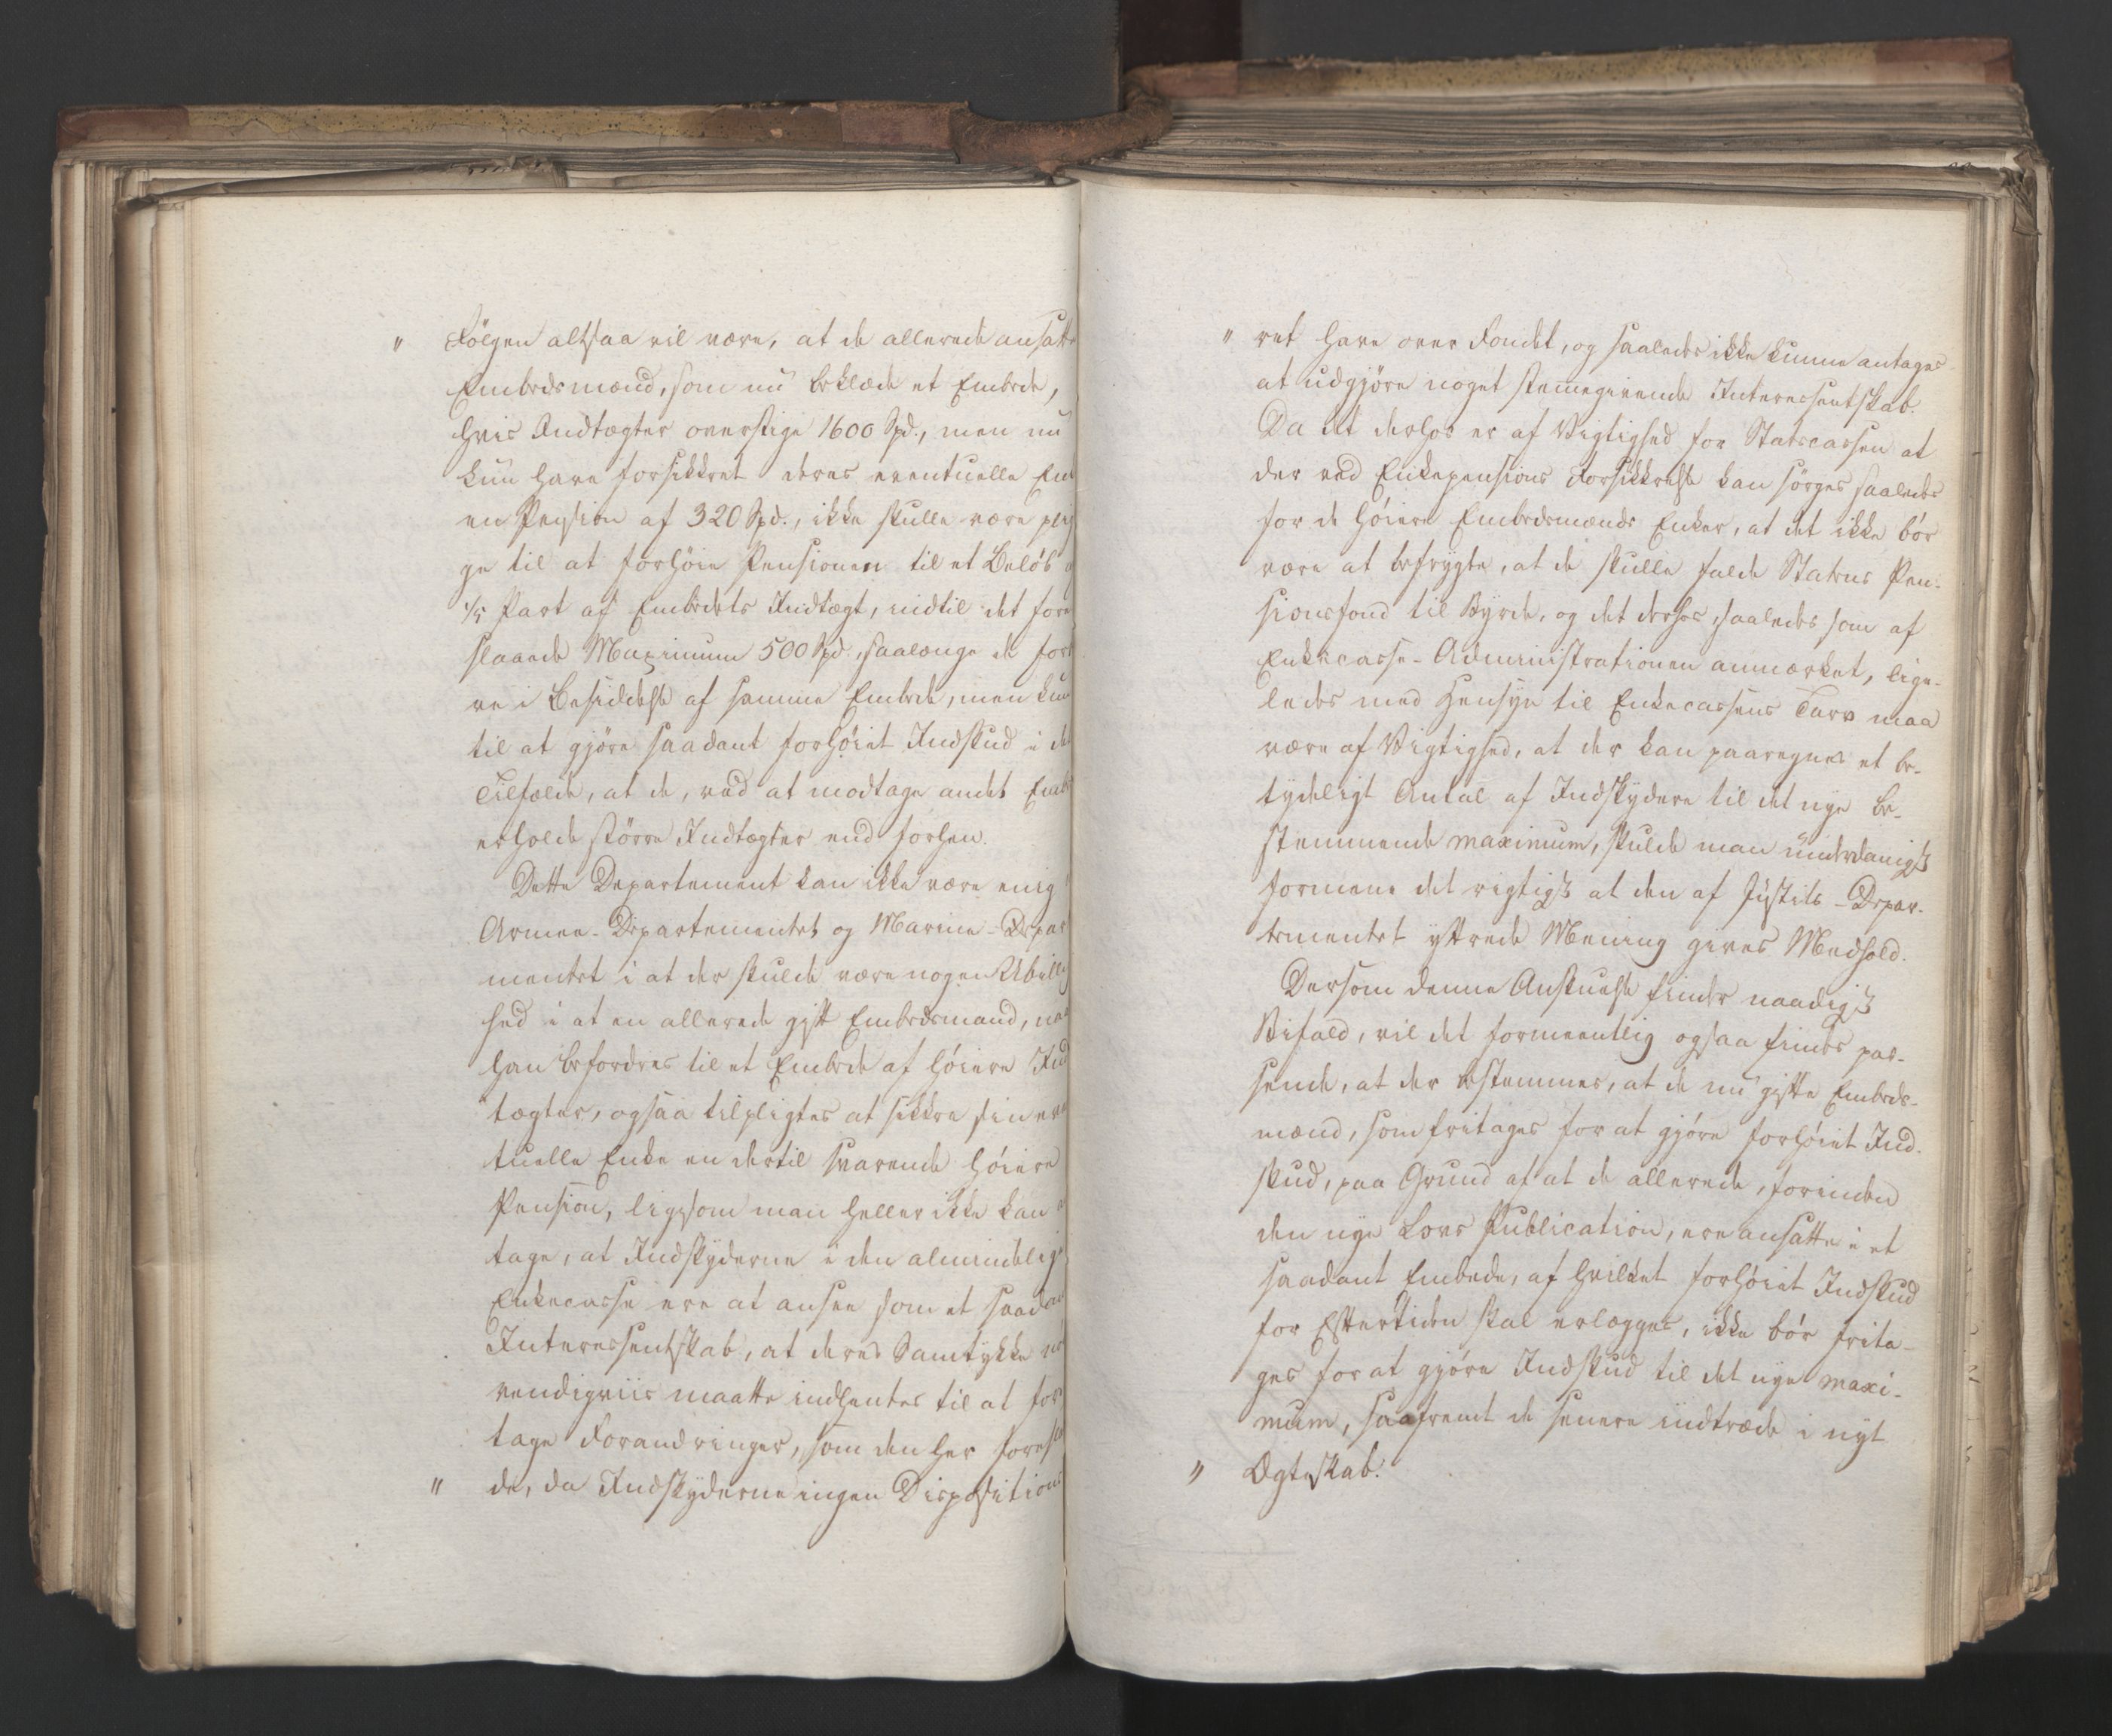 " Følgen altsaa vil være, at de allerede ansatte
Embedsmænd, som nu beklæde et Embede,
hvis Indtægter overstige 1600 Spd., men nu
kun have forsikkret deres eventuelle Enk
en Pension af 320 Spd., ikke skulle være plig
ge til at forhöie Pensionen til et Belöb a
1/5 Part af Embedets Indtægt, indtil det fore
slaaede Maximum 500 Spd., saalænge de forb
ve i Besiddelse af samme Embede, men kun
til at gjöre saadant forhöiet Indskud i det
Tilfælde, at de, ved at modtage andet Embe
erholde större Indtægter end forhen.
Dette Departement kan ikke være enig
Armee-Departementet og Marine-Depar
mentet i at der skulde være nogen Ubillig
hed i at en allerede gift Embedsmand, naa
han befordres til et Embede af höiere Ind
tægter, ogsaa tilpligtes at sikkre sin even
tuelle Enke en dertil svarende höiere
Pension, ligesom man heller ikke kan a
tage, at Indskyderne i den almindelige
Enkecasse ere at ansee som et saadan
Interessentskab, at deres Samtykke nöd
vendigviis maatte indhentes til at fore
tage Forandringer, som den her foresla
" de, da Indskyderne ingen Dispositions
" ret have over Fondet, og saaledes ikke kunne antages
at udgjöre noget stemmegivende Interessentskab.
Da det derhos er af Vigtighed for Statscassen at
der ved Enkepensions Forsikkrelse kan sörges saaledes
for de höiere Embedsmænds Enker, at det ikke bör
være at befrygte, at de skulle falde Statens Pen-
sionsfond til Byrde, og det derhos, saaledes som af
Enkecasse-Administrationen anmærket, lige-
ledes med Hensyn til Enkecassens Tarv maa
være af Vigtighed, at der kan paaregnes et be-
tydeligt Antal af Indskydere til det nye be-
stemmende maximum, skulde man underdanigst
formene det rigtigst at den af Justits-Depar-
tementet yttrede Mening gives Medhold.
Dersom denne Anskuelse finder naadigst
Bifald, vil det formeentlig ogsaa findes pas-
sende, at der bestemmes, at de nu gifte Embeds-
mænd, som fritages for at gjöre forhöiet Ind-
skud, paa Grund af at de allerede, forinden
den nye Lovs Publication, ere ansatte i et
saadant Embede, af hvilket forhöiet Indskud
for Eftertiden skal erlægges, ikke bör frita-
ges for at gjöre Indskud til det nye maxi-
mum, saafremt de senere indtræde i nyt
" Ægteskab.